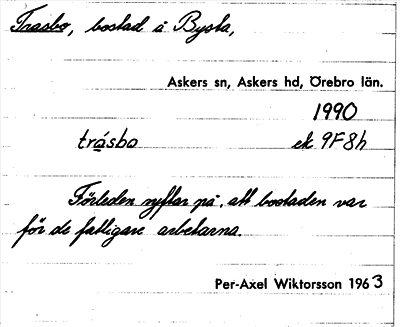 Trasbo, bostad å Bysta,
Askers sn, Askers hd, Örebro län.
1990
trásbo ek 9F8h
Förleden syftar på, att bostaden var
för de fattigare arbetarna.
Per-Axel Wiktorsson 1963